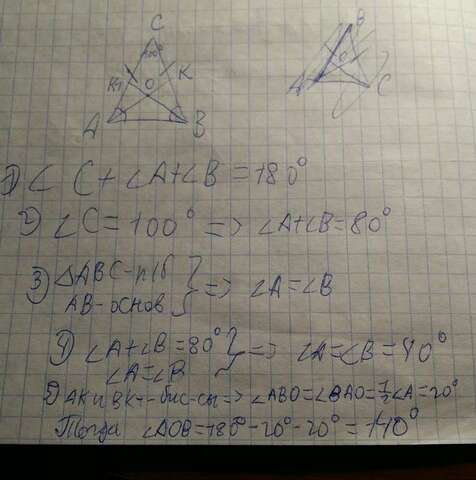 C
100°
K1
O
K
A
B
B
O
A
C
1) ∠C+∠A+∠B=180°
2) ∠C=100° => ∠A+∠B=80°
3) △ABC-п/б
АВ-основ } => ∠A=∠B
4) ∠A+∠B=80°
∠A=∠B } => ∠A=∠B=40°
5) АК и ВК1-бис-сы => ∠ABO=∠BAO=½∠A=20°
Тогда ∠AOB=180°-20°-20°=140°